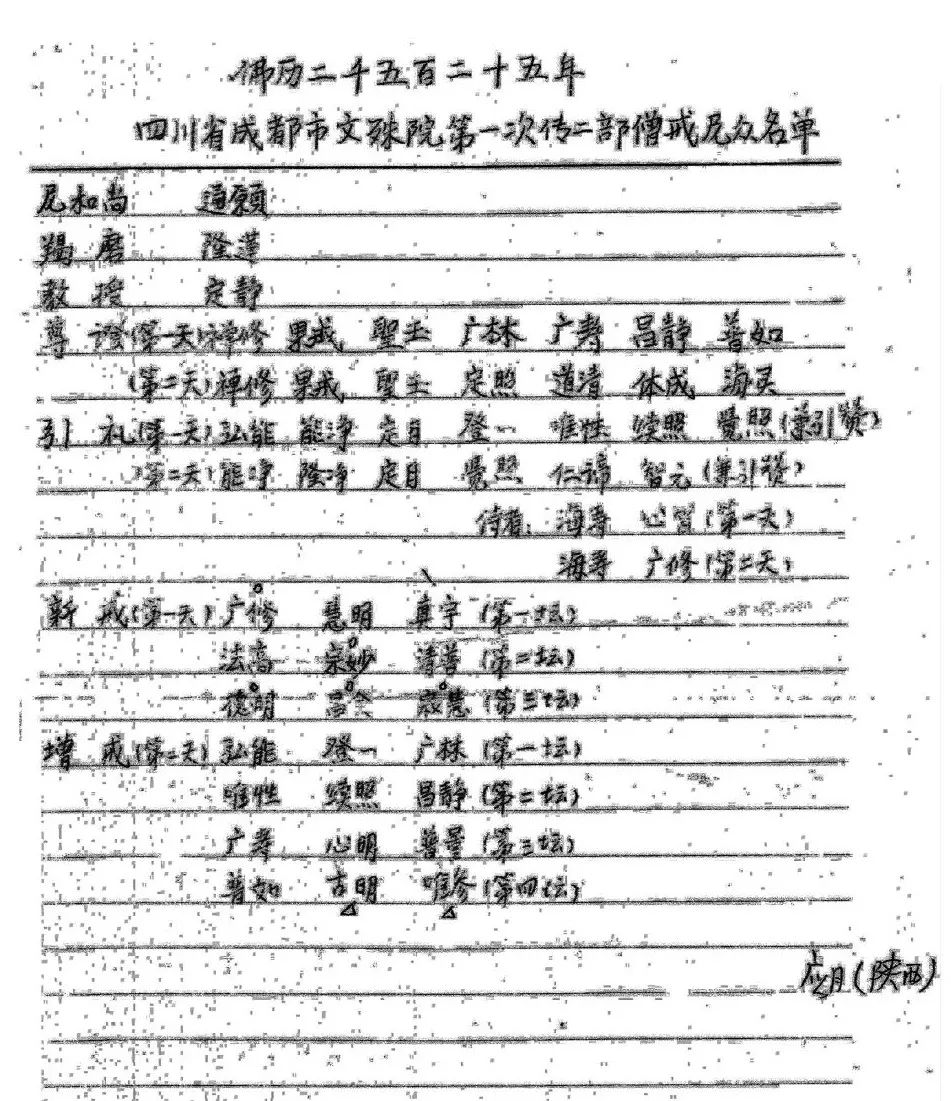 佛历二千五百二十五年
四川省成都市文殊院第一次传二部僧戒尼众名单
尼和尚 通願
羯磨 隆莲
教授 定静
尊證(第一天)禅修 果戒 聖玉 广林 广寿 昌静 普如
(第二天)禅修 果戒 聖玉 定照 道清 体成 海灵
引礼(第一天)弘能 能净 定目 登一 唯性 续照 覺照(兼引赞)
(第二天)能净 隆净 定目 覺照 仁谛 智元(兼引赞)
侍者:海寿 心 (第一天)
海寿 广修(第二天)
新戒(第一天)广修 慧明 真宇(第一坛)
法高 宗妙 清善(第二坛)
德明 寂慧(第三坛)
增戒(第二天)弘能 登一 广林(第一坛)
唯性 续照 昌静(第二坛)
广寿 心明 普量(第三坛)
普如 古明 唯参(第四坛)
应月(陕西)